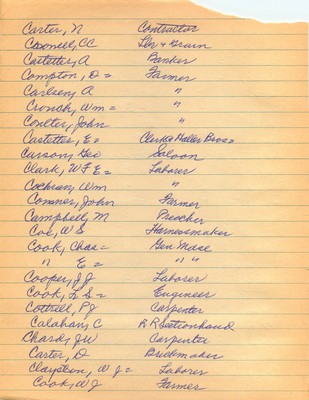 Carter, N Contractor
Connell, CC Lbr & Grain
Castetter, A Banker
Compton, D = Farmer
Carlsen, A "
Cronch, Wm = "
Coulter, John "
Castetter, E = Clerk @ Haller Bros =
Curson, Geo Saloon
Clark, W F E = Laborer
Cochran, Wm "
Conner, John Farmer
Campbell, M Preacher
Coe, W S Harnessmaker
Cook, Chas = Gen Mdse
" E = " "
Cooper, J J Laborer
Cook, L S = Engineer
Cottrell, P J Carpenter
Calahan, C R R Sectionhand
Chard, J W Carpenter
Carter, D Brickmaker
Clayston, W J = Laborer
Cook, W J Farmer